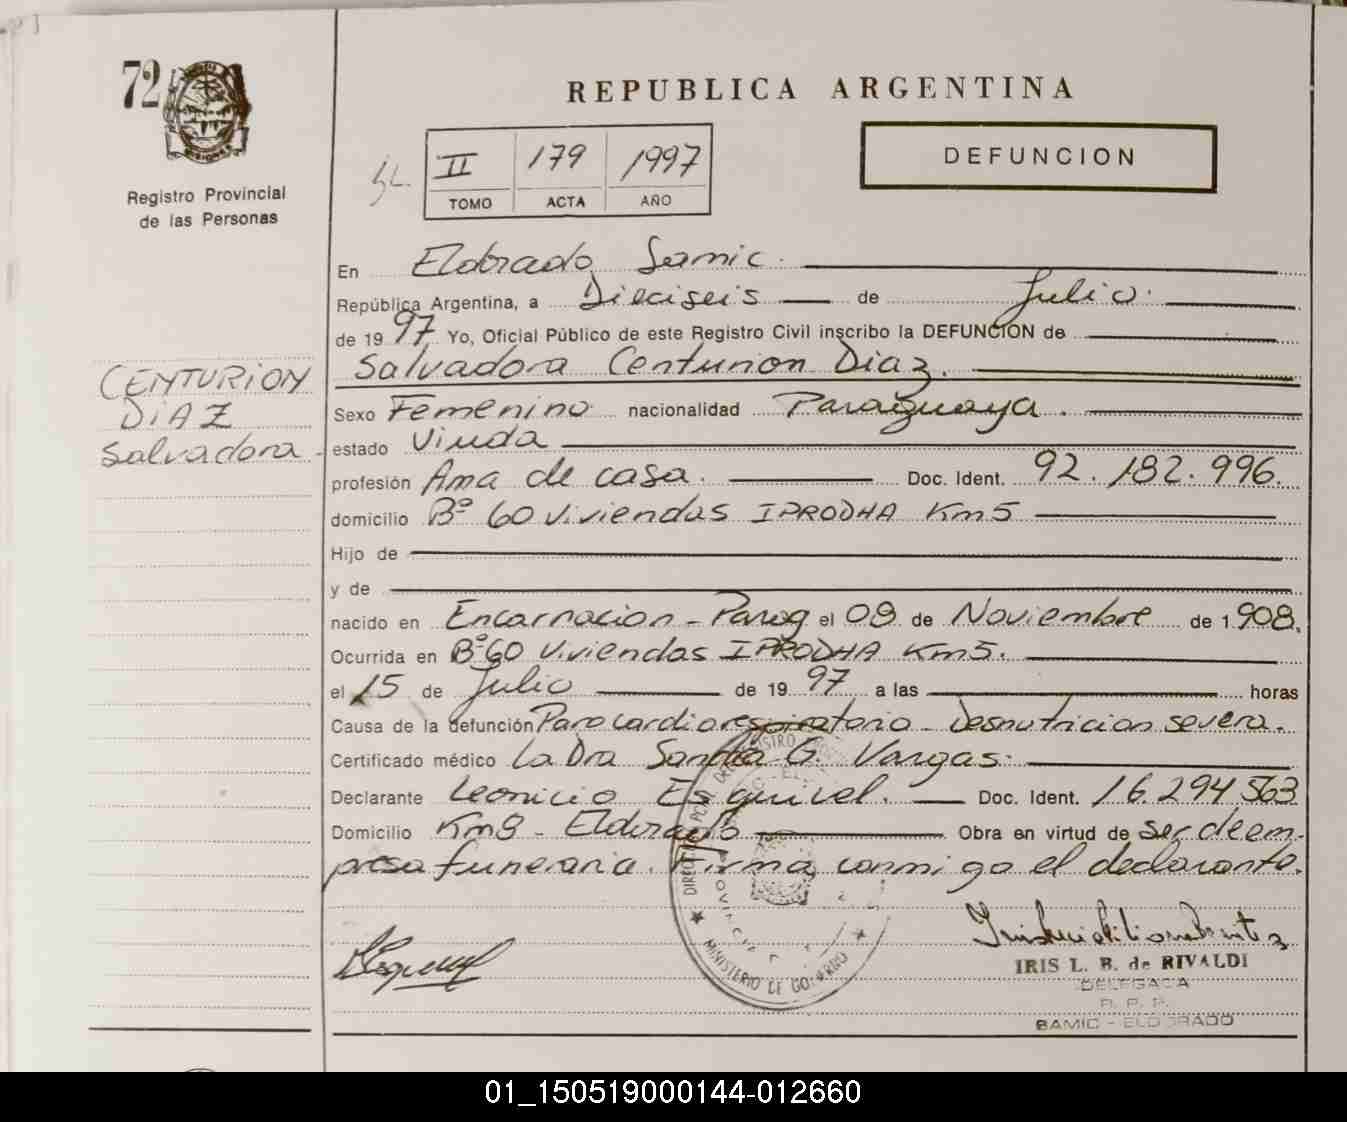 72
MISIONES
Registro Provincial
de las Personas
CENTURION
DIAZ
Salvadora
REPUBLICA ARGENTINA
DEFUNCION
II 179 1997
TOMO ACTA AÑO
En Eldorado Samic.
República Argentina, a Dieciseis de Julio.
de 1997. Yo, Oficial Público de este Registro Civil inscribo la DEFUNCION de
Salvadora Centurion Diaz.
Sexo Femenino nacionalidad Paraguaya.
estado Viuda
profesión Ama de casa. Doc. Ident. 92.182.996.
domicilio Bº 60 Viviendas IPRODHA Km5
Hijo de
y de
nacido en Encarnacion - Parag el 08 de Noviembre de 1.908.
Ocurrida en Bº 60 Viviendas IPRODHA Km5.
el 15 de Julio de 1997 a las horas
Causa de la defunción Paro cardiorespiratorio - Desnutricion severa.
Certificado médico La Dra Sandra G. Vargas.
Declarante Leonicio Esquivel. Doc. Ident. 16.294563
Domicilio Km8 - Eldorado Obra en virtud de ser de em-
presa funeraria. Firma conmigo el declarante.
MINISTERIO DE GOBIERNO
IRIS L. B. de RIVALDI
DELEGADA
R. P. P.
SAMIC - ELDORADO
01_150519000144-012660